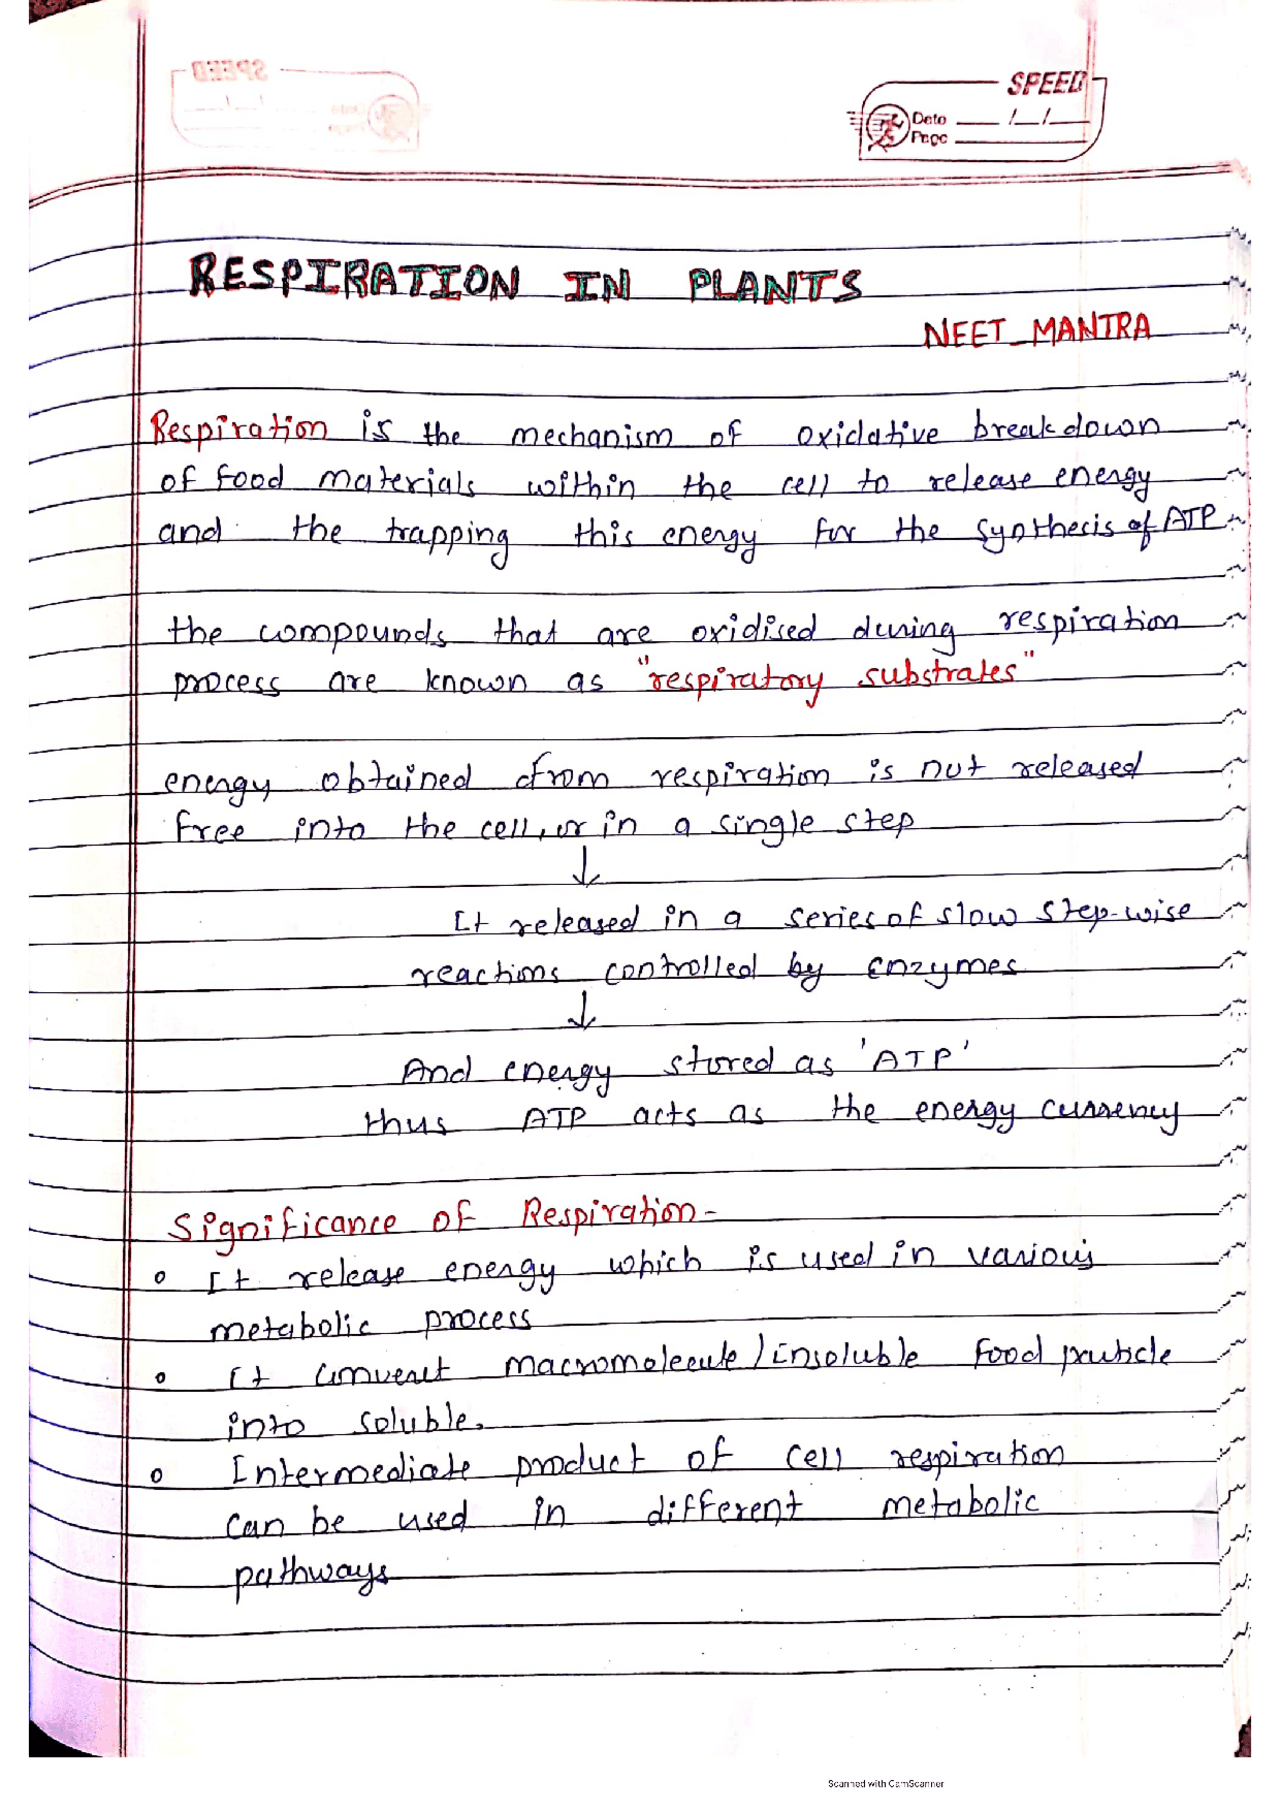 SPEED
Date __/__/__
Page
RESPIRATION IN PLANTS
NEET_MANTRA
Respiration is the mechanism of oxidative breakdown
of food materials within the cell to release energy
and the trapping this energy for the synthesis of ATP.
the compounds that are oxidised during respiration
process are known as "respiratory substrates"
energy obtained from respiration is not released
free into the cell, or in a single step
↓
It released in a series of slow step-wise
reactions controlled by enzymes
↓
And energy stored as 'ATP'
thus ATP acts as the energy currency
Significance of Respiration-
o It release energy which is used in various
metabolic process
o It convert macromolecule/insoluble food particle
into soluble.
o Intermediate product of cell respiration
can be used in different metabolic
pathways
Scanned with CamScanner